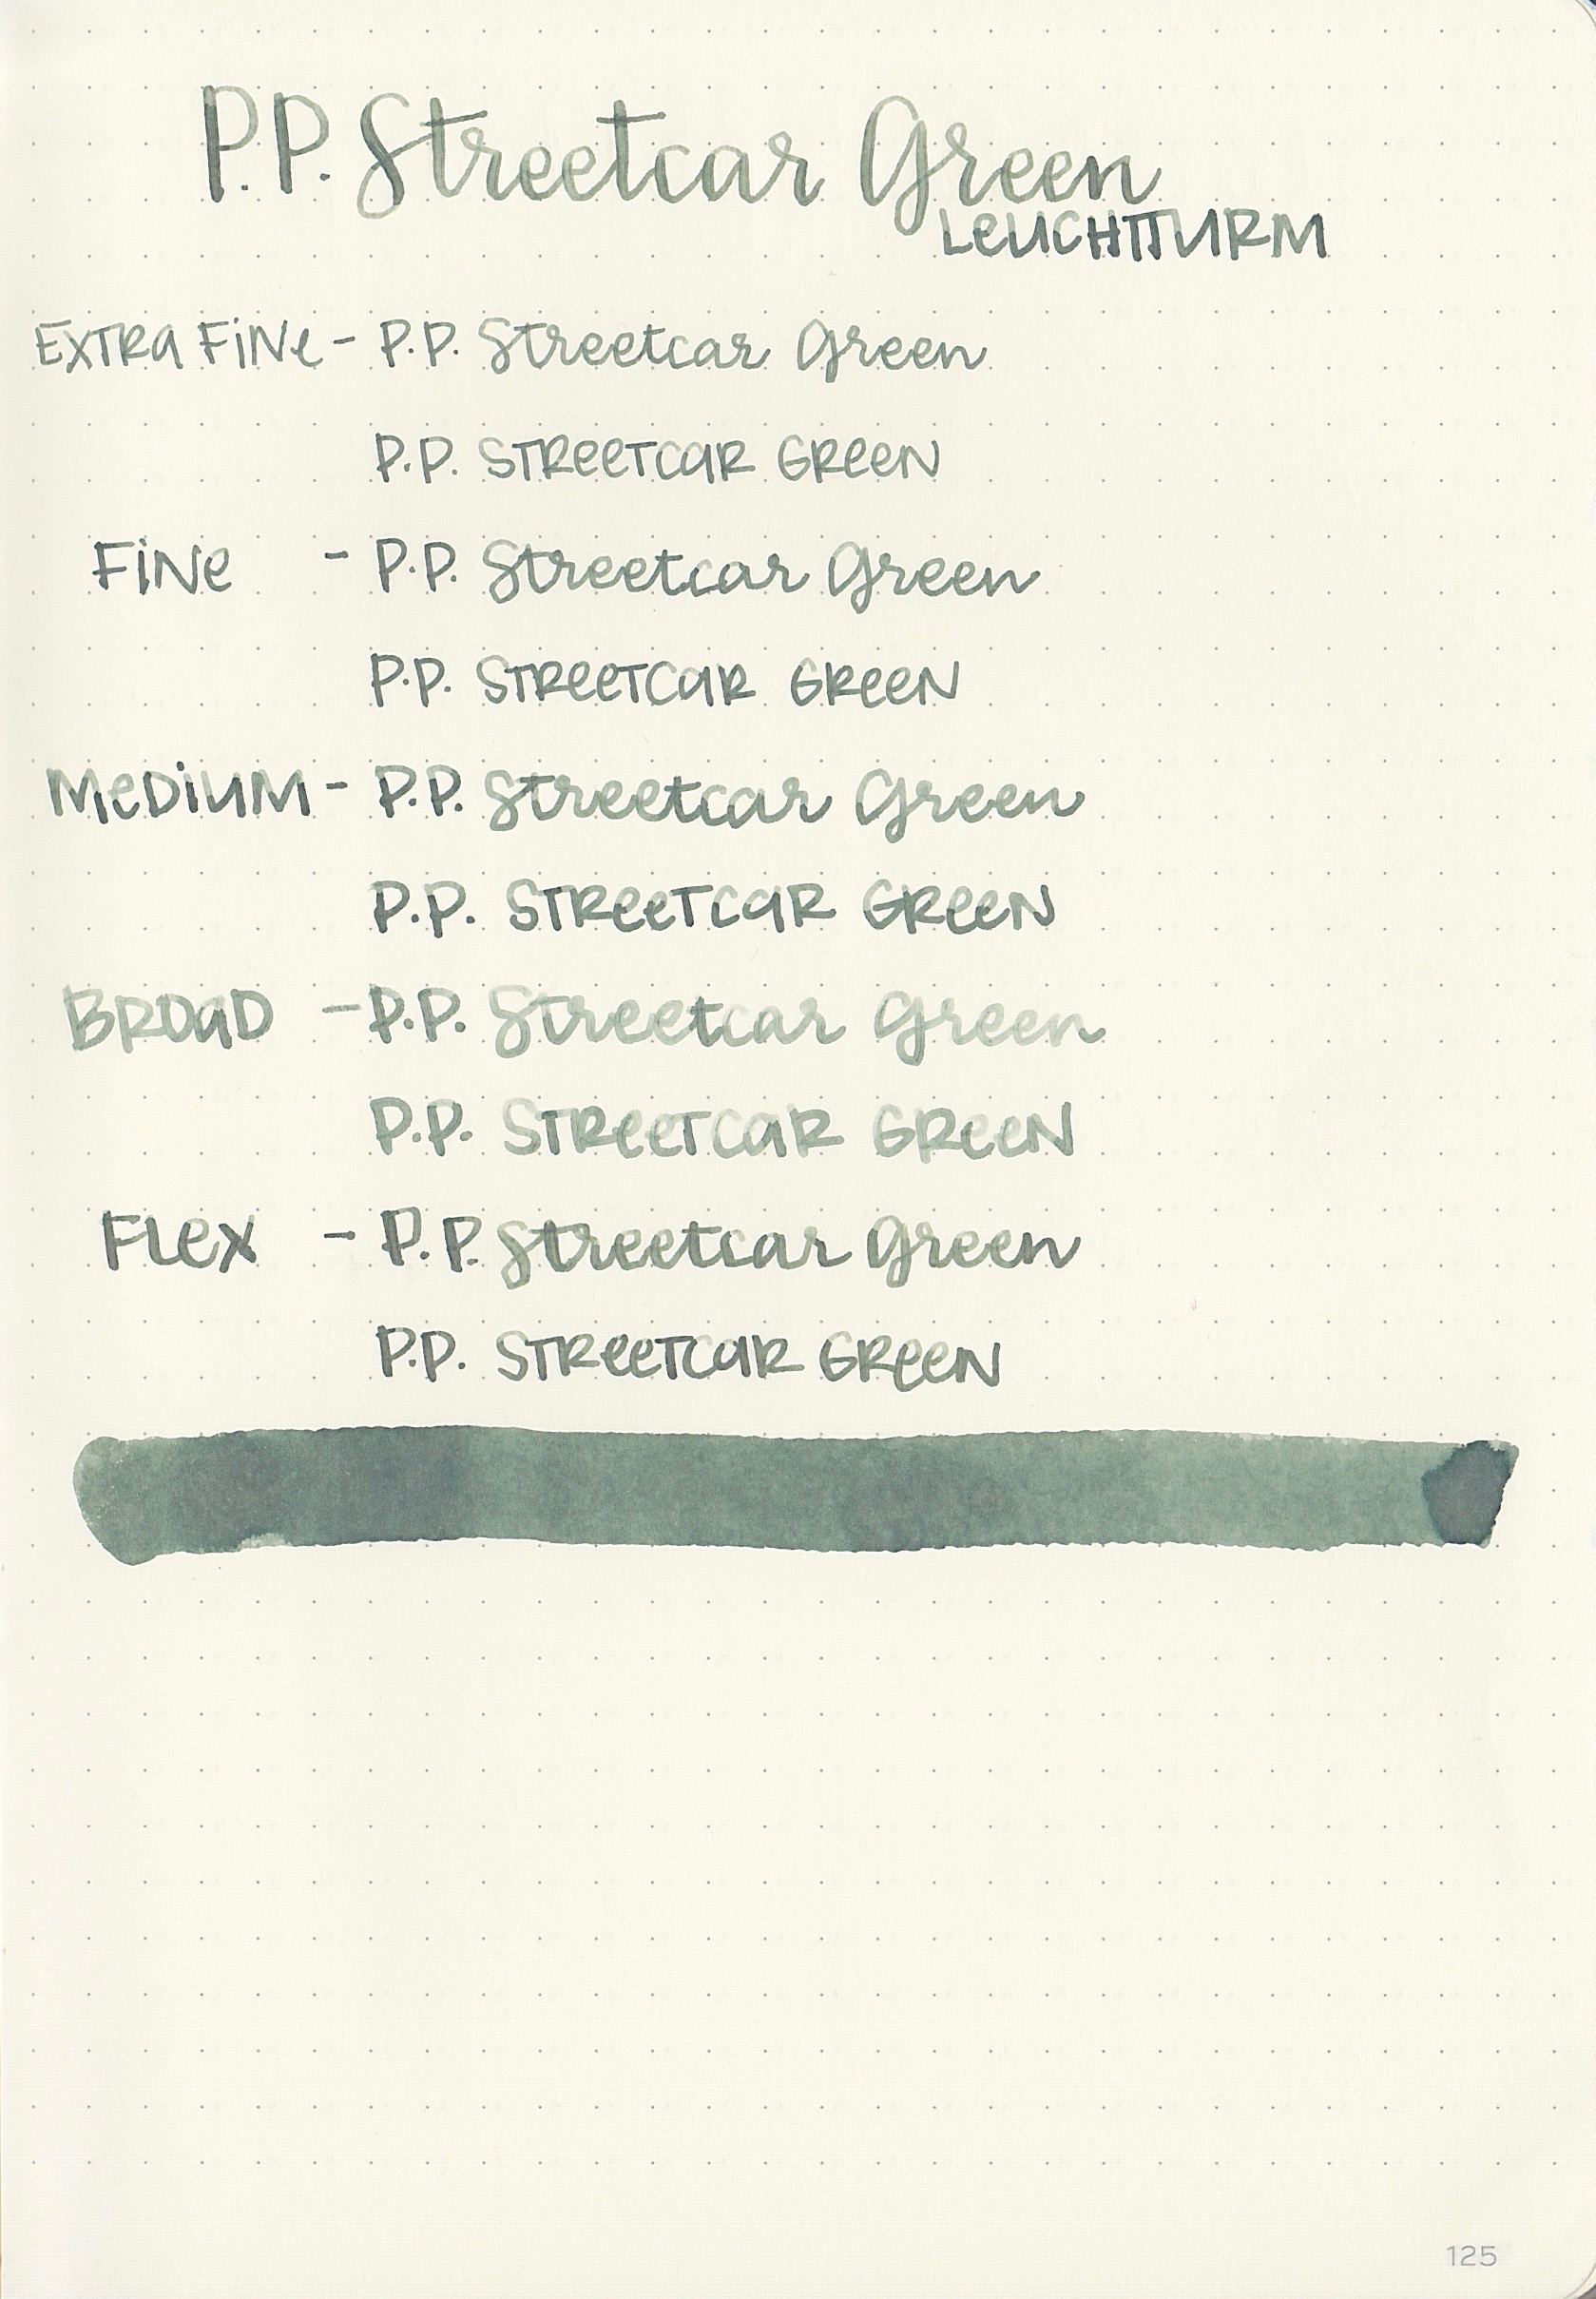 P.P. Streetcar Green
LEUCHTTURM
EXTRA FINE - P.P. Streetcar Green
P.P. STREETCAR GREEN
FINE - P.P. Streetcar Green
P.P. STREETCAR GREEN
MEDIUM - P.P. Streetcar Green
P.P. STREETCAR GREEN
BROAD - P.P. Streetcar Green
P.P. STREETCAR GREEN
FLEX - P.P. Streetcar Green
P.P. STREETCAR GREEN
125